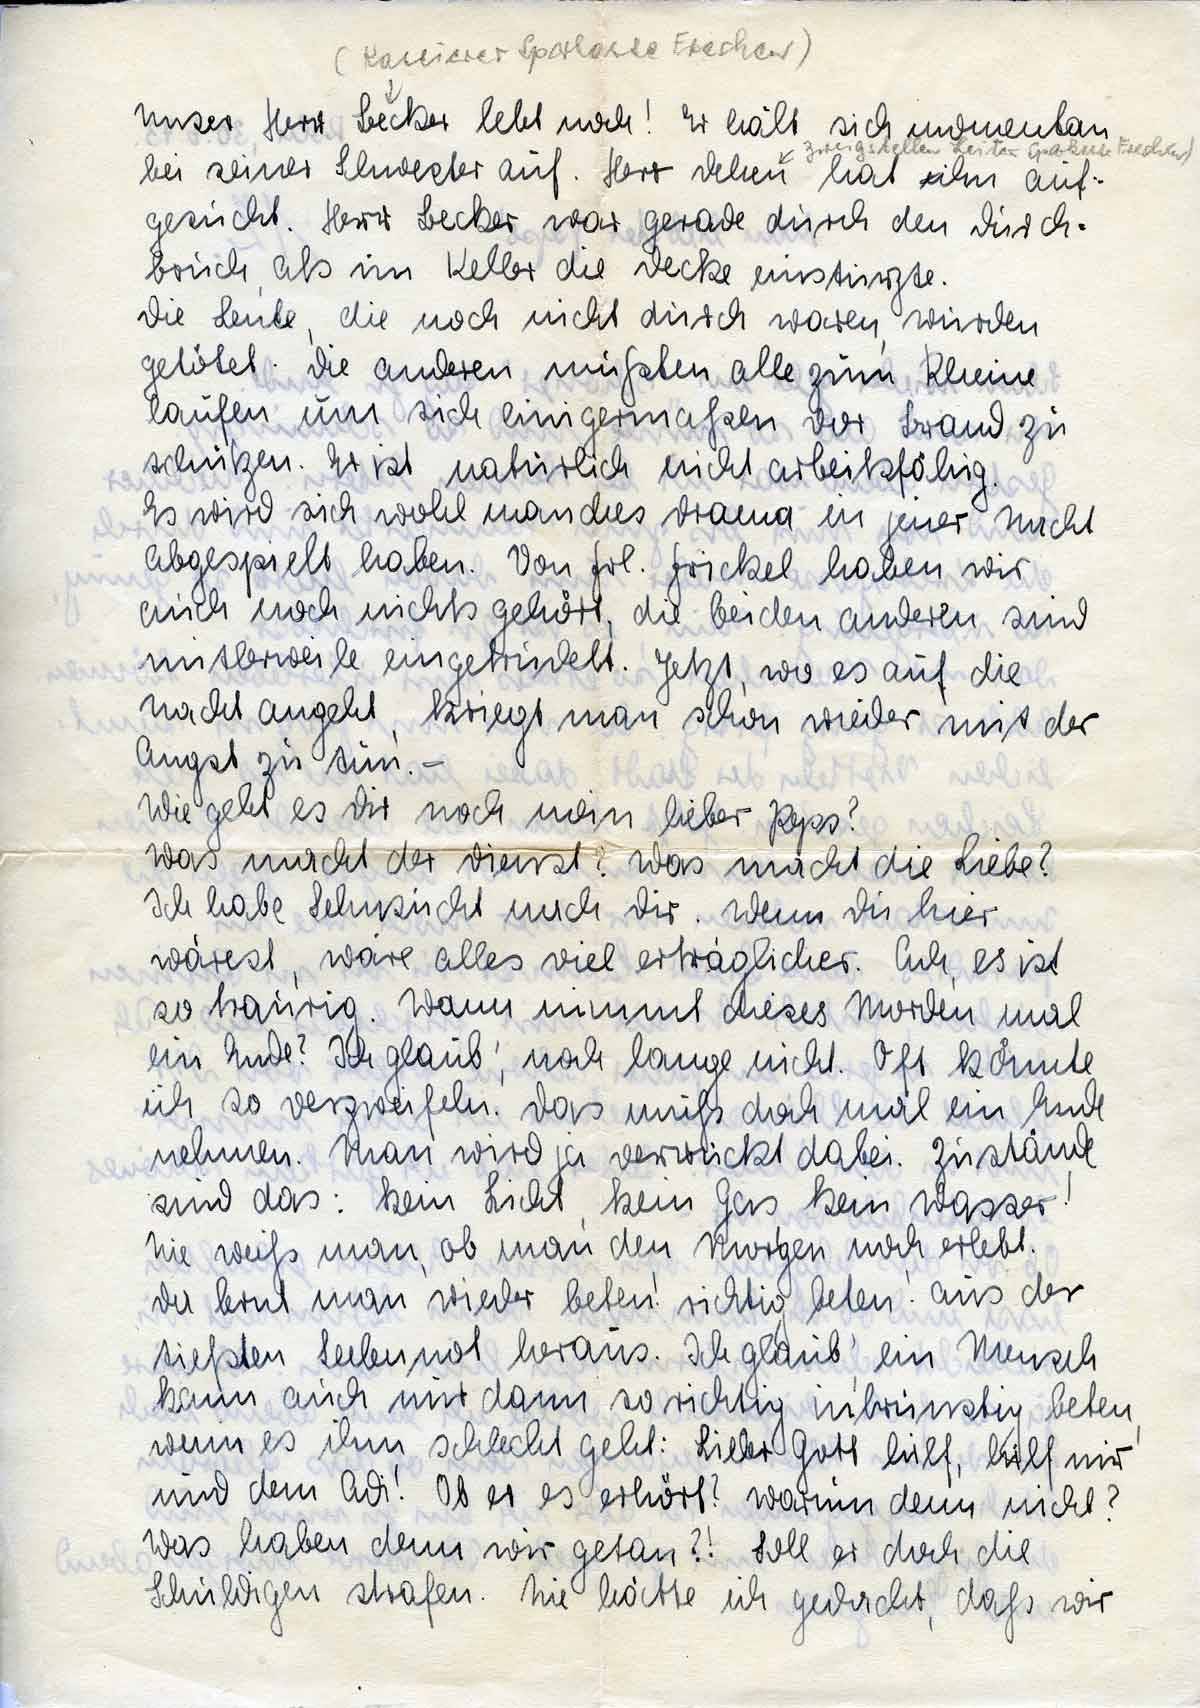 (Kassierer Sparkasse Frechen)
Unser Herr Becker lebt noch! Er hält sich momentan
zweigstellen Leiter Sparkasse Frechen)
bei seiner Schwester auf. Herr Dehen hat ihn auf-
gesucht. Herr Becker war gerade durch den Durch-
bruch, als im Keller die Decke einstürzte.
Die Leute, die noch nicht durch waren, wurden
getötet. Die anderen mußten alle zum Rheine
laufen um sich einigermaßen vor Brand zu
schützen. Er ist natürlich nicht arbeitsfähig.
Es wird sich wohl manches Drama in jener Nacht
abgespielt haben. Von Frl. Frickel haben wir
auch noch nichts gehört, die beiden anderen sind
mittlerweile eingetrudelt. Jetzt, wo es auf die
Nacht angeht, kriegt man schon wieder mit der
Angst zu tun. –
Wie geht es Dir noch mein lieber Pops?
Was macht der Dienst? Was macht die Liebe?
Ich habe Sehnsucht nach Dir. Wenn Du hier
wärest, wäre alles viel erträglicher. Ach, es ist
so traurig. Wann nimmt dieses Morden mal
ein Ende? Ich glaub', noch lange nicht. Oft könnte
ich so verzweifeln. Das muß doch mal ein Ende
nehmen. Man wird ja verrückt dabei. Zustände
sind das: kein Licht, kein Gas kein Wasser!
Nie weiß man, ob man den Morgen noch erlebt.
Da lernt man wieder beten! richtig beten! aus der
tiefsten Seelennot heraus. Ich glaub', ein Mensch
kann auch nur dann so richtig inbrünstig beten,
wenn es ihm schlecht geht: Lieber Gott hilf, hilf mir
und dem Adi! Ob er es erhört? Warum denn nicht?
Was haben denn wir getan?! Soll er doch die
Schuldigen strafen. Nie hätte ich gedacht, daß wir